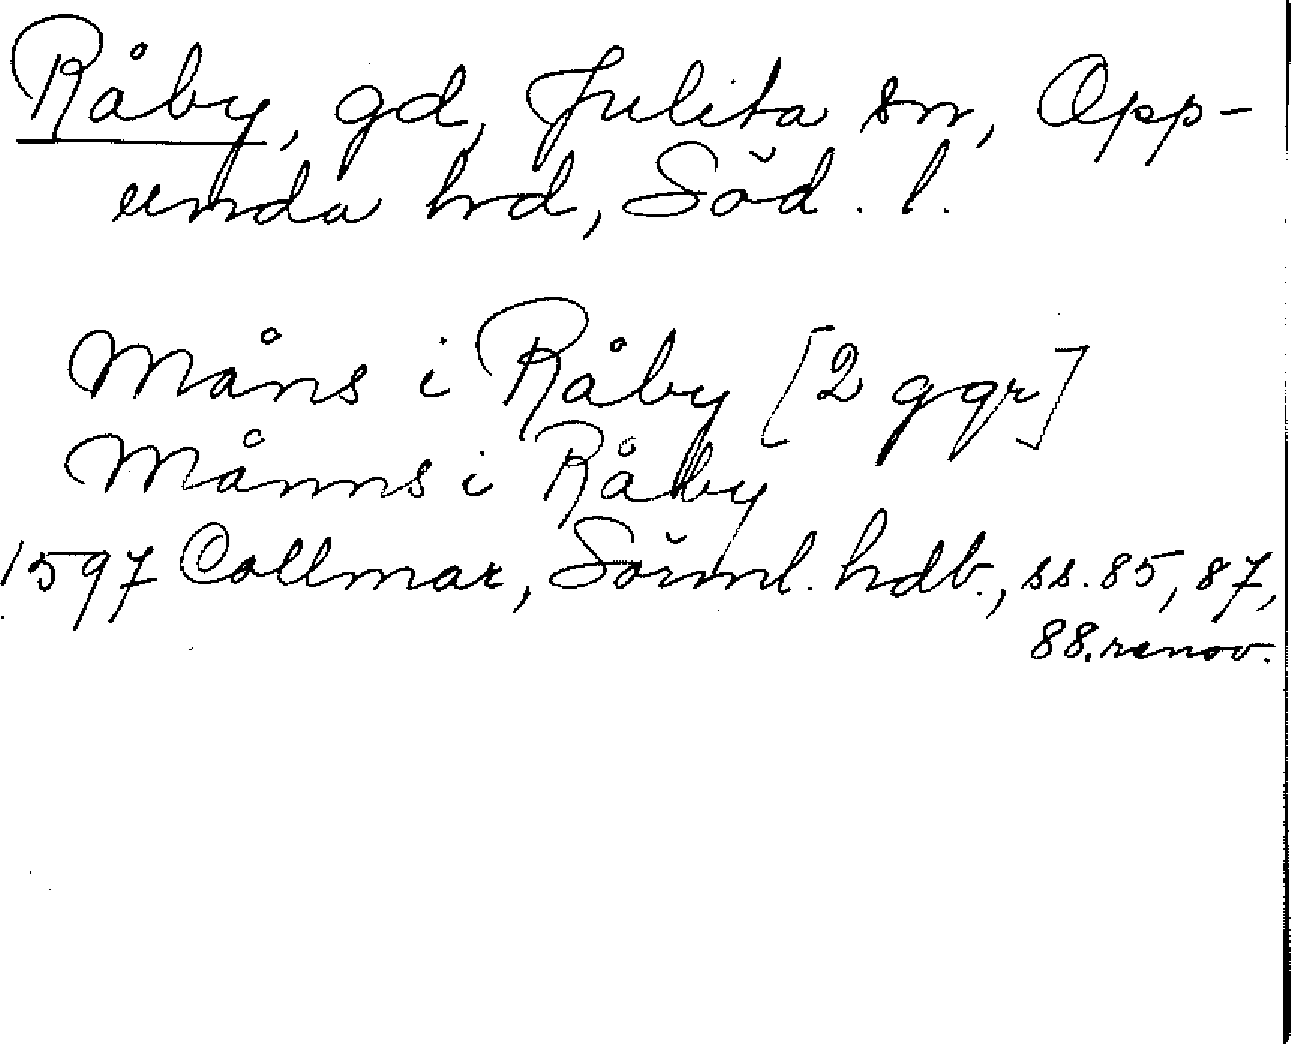 Råby, gd, Julita sn, Opp-
unda hd, Söd. l.
Måns i Råby [2 ggr]
Månns i Råby
1597 Collmar, Sörml. hdb., ss. 85, 87,
88. renov.